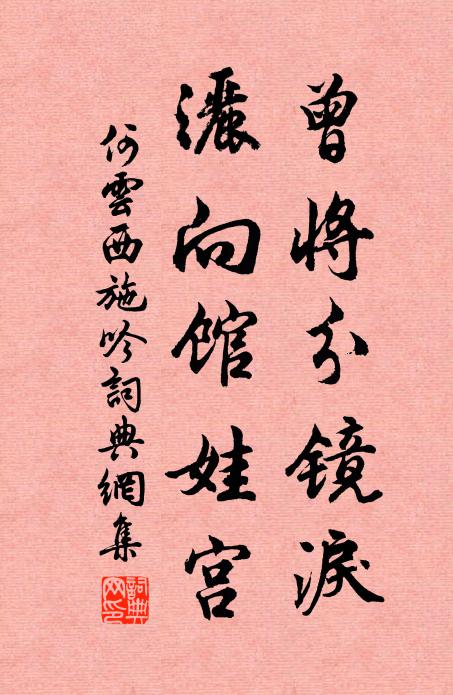 曾將分鏡淚
灑向館娃宮
何雲西施吟詞典網集
詞典网印